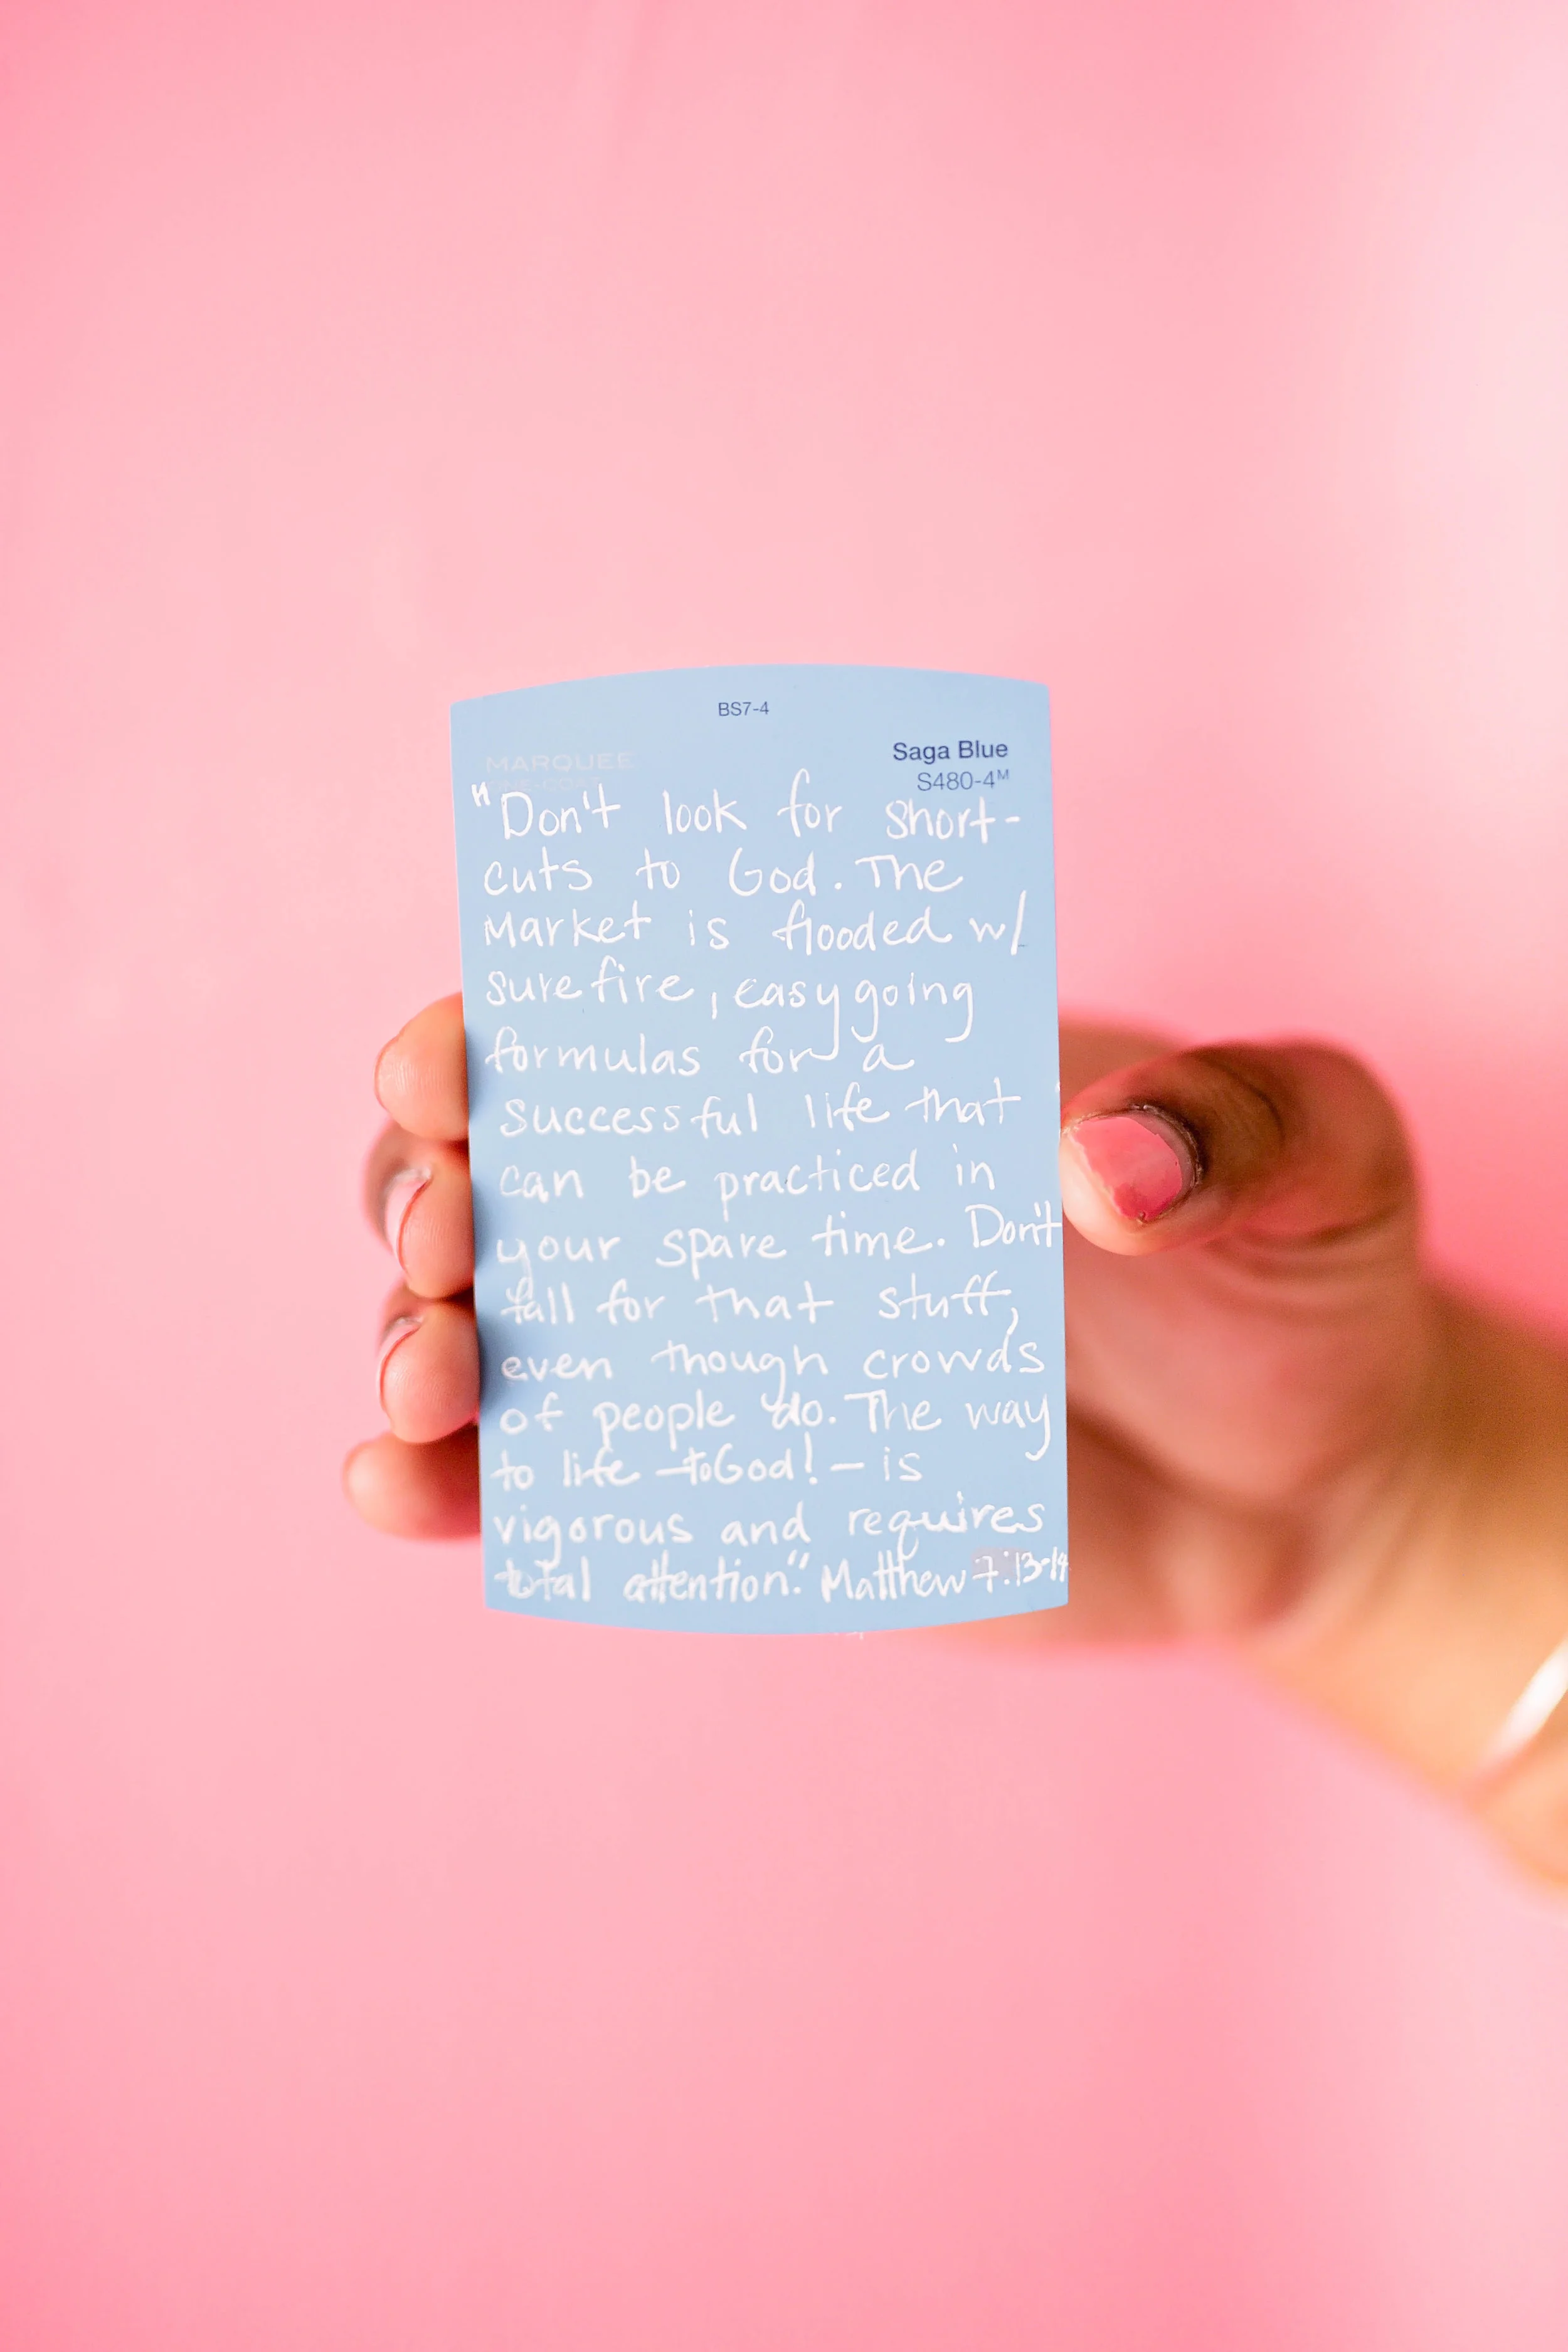 BS7-4
MARQUEE
Saga Blue
ONE-COAT
S480-4ᴹ
"Don't look for short-
cuts to God. The
Market is flooded w/
surefire, easygoing
formulas for a
successful life that
can be practiced in
your spare time. Don't
fall for that stuff,
even though crowds
of people do. The way
to life - to God! - is
vigorous and requires
total attention." Matthew 7:13-14